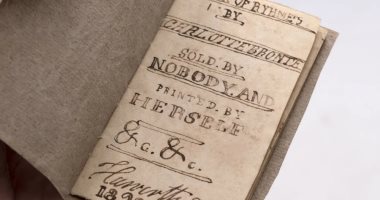 OF RYHMES
BY.
CHARLOTTE BRONTE
SOLD. BY
NOBODY. AND
PRINTED. BY
HERSELF
&c. &c.
Haworth